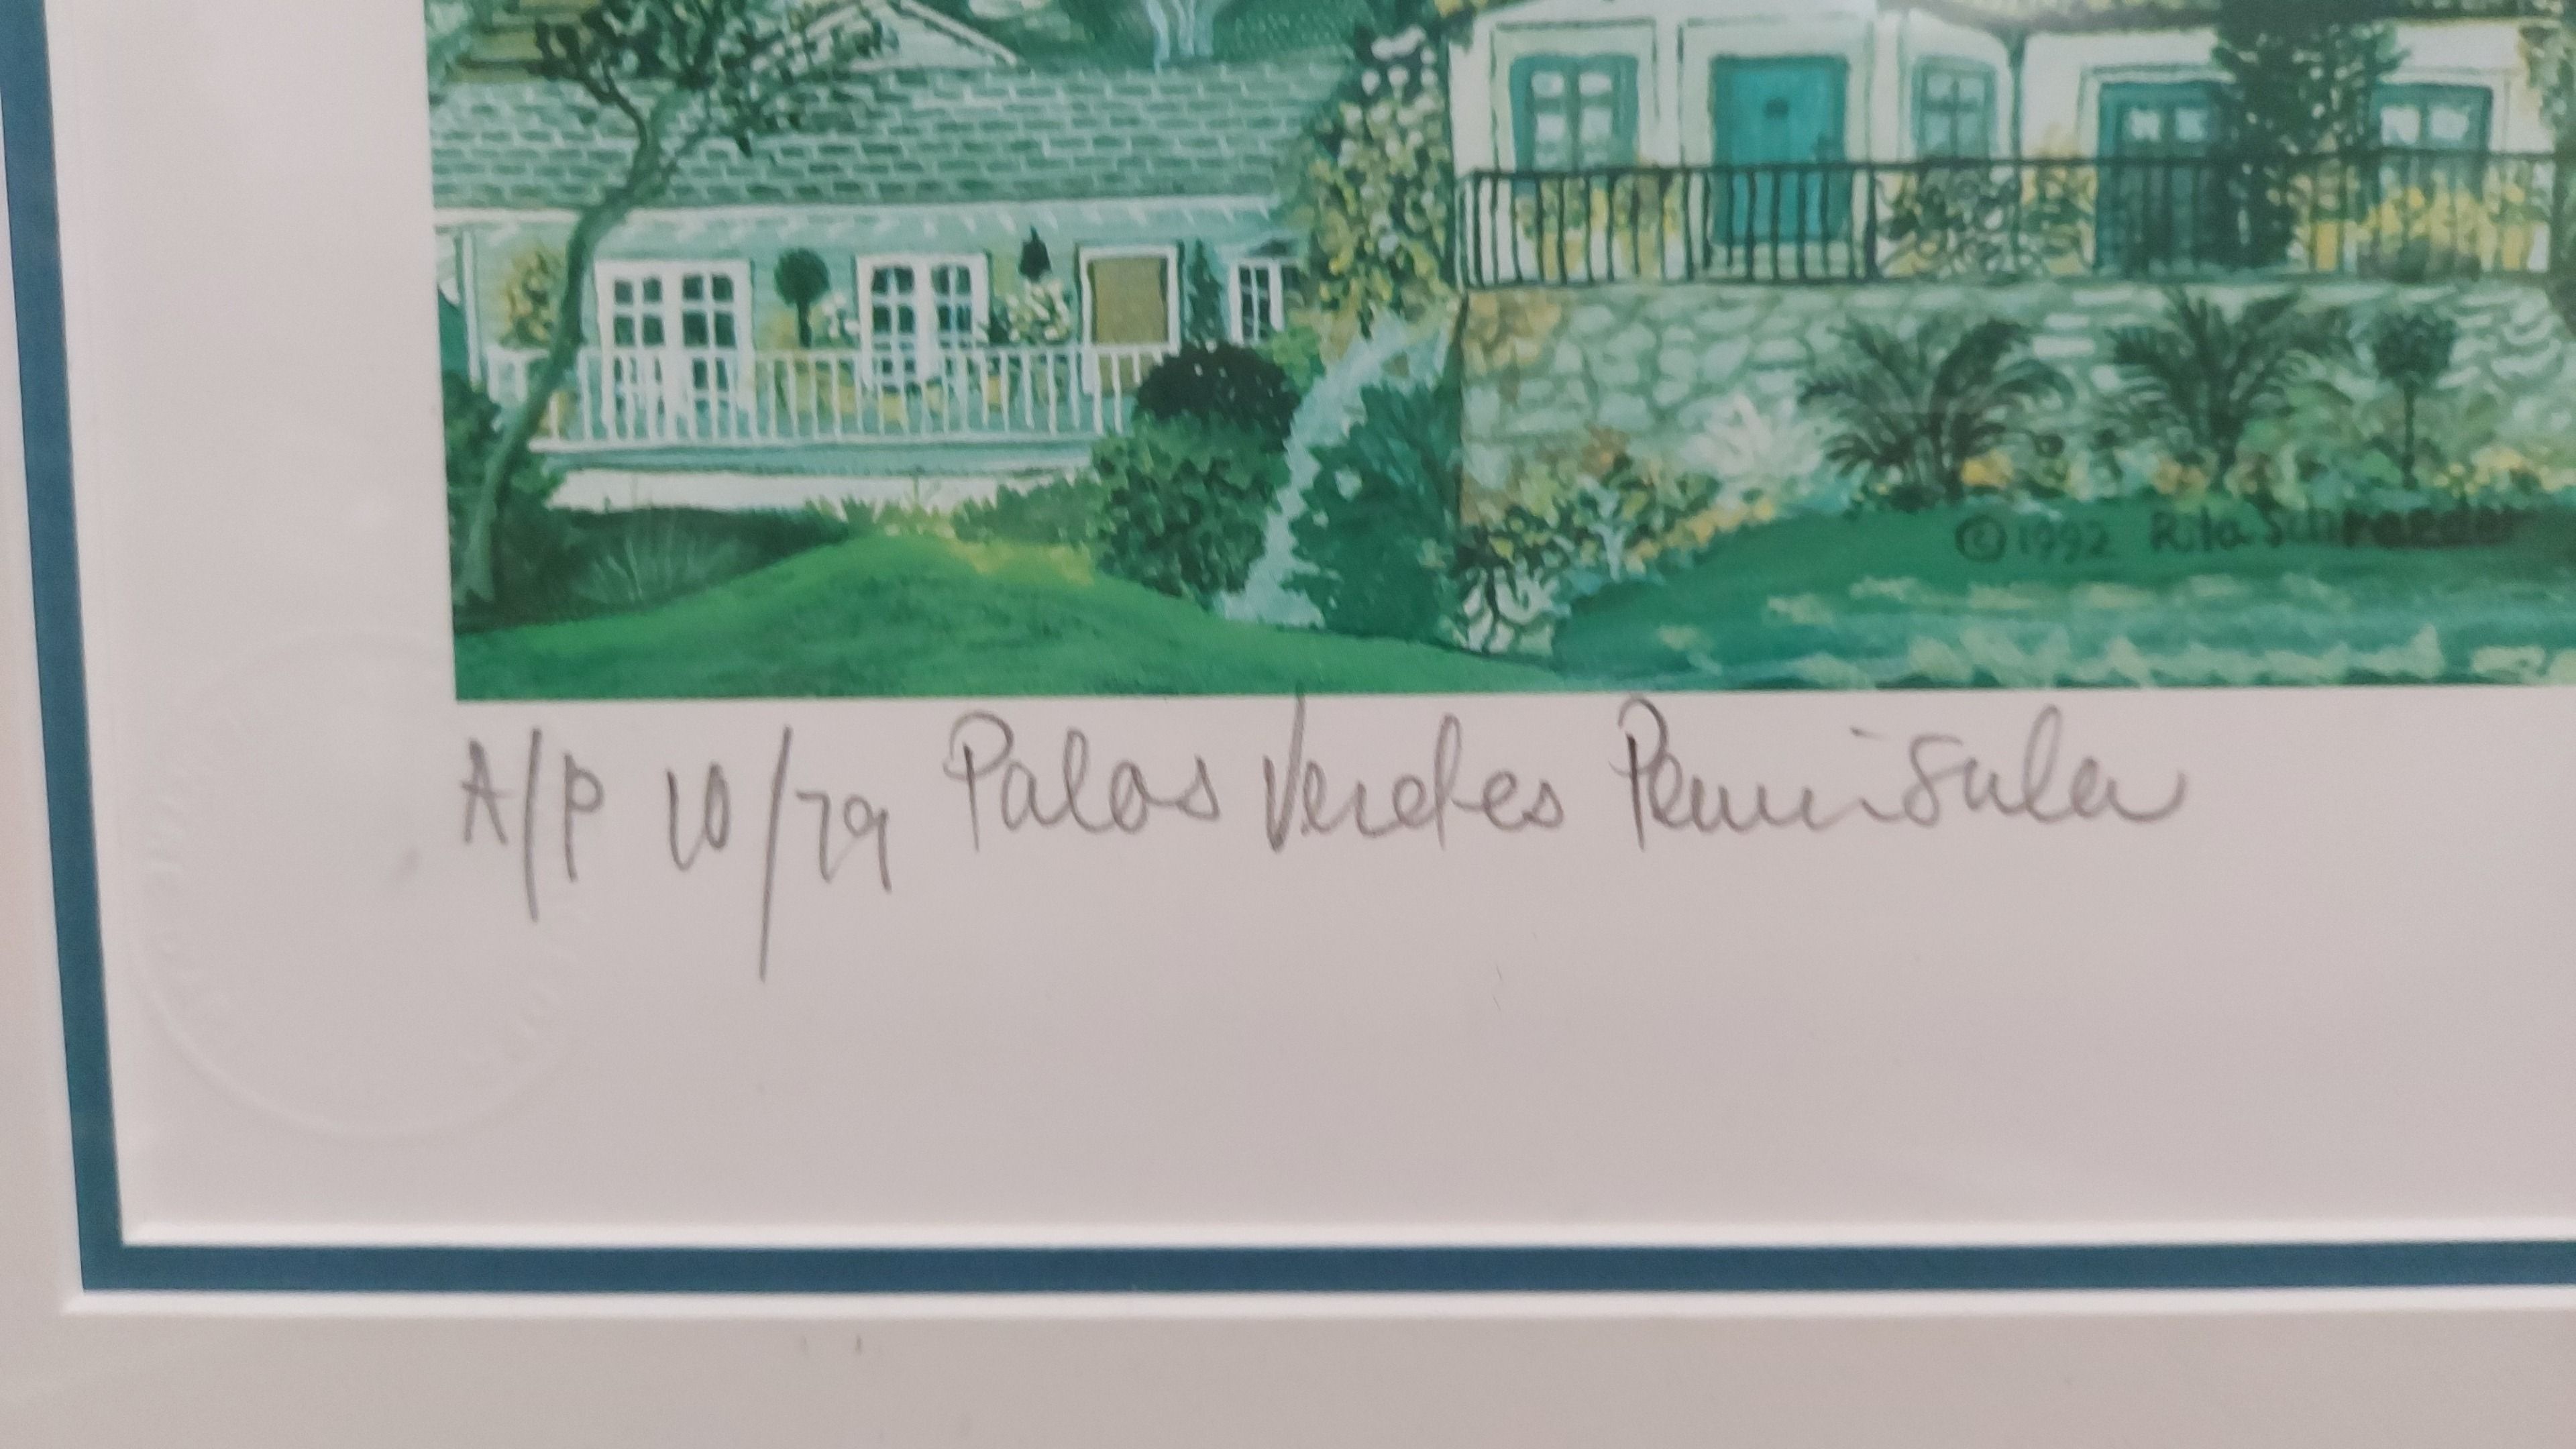 ©1992 Rita Schroeder
A/P 10/79 Palos Verdes Peninsula